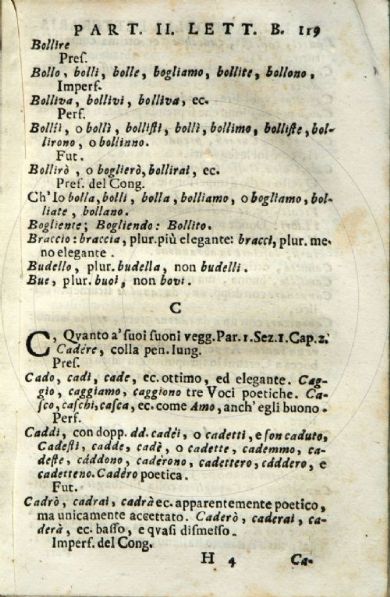 PART. II. LETT. B. 119
Bollire
Pres.
Bollo, bolli, bolle, bogliamo, bollite, bollono,
Imperf.
Bolliva, bollivi, bolliva, ec.
Perf.
Bollii, o bollì, bollisti, bollì, bollimo, bolliste, bol-
lirono, o bollinno.
Fut.
Bollirò, o boglierò, bollirai, ec.
Pres. del Cong.
Ch'Io bolla, bolli, bolla, bolliamo, o bogliamo, bol-
liate, bollano.
Bogliente; Bogliendo: Bollito.
Braccio: braccia, plur. più elegante: bracci, plur. me-
no elegante.
Budello, plur. budella, non budelli.
Bue, plur. buoi, non bovi.
C
C, Qvanto a' suoi suoni vegg. Par. 1. Sez. 1. Cap. 2.
Cadére, colla pen. lung.
Pres.
Cado, cadi, cade, ec. ottimo, ed elegante. Cag-
gio, caggiamo, caggiono tre Voci poetiche. Ca-
sco, caschi, casca, ec. come Amo, anch'egli buono.
Perf.
Caddi, con dopp. dd. cadéi, o cadetti, e son caduto,
Cadesti, cadde, cadè, o cadette, cademmo, ca-
deste, cáddono, cadérono, cadettero, cáddero, e
cadetteno. Cadéro poetica.
Fut.
Cadrò, cadrai, cadrà ec. apparentemente poetico,
ma unicamente accettato. Caderò, caderai, ca-
derà, ec. basso, e qvasi dismesso.
Imperf. del Cong.
H 4 Ca-